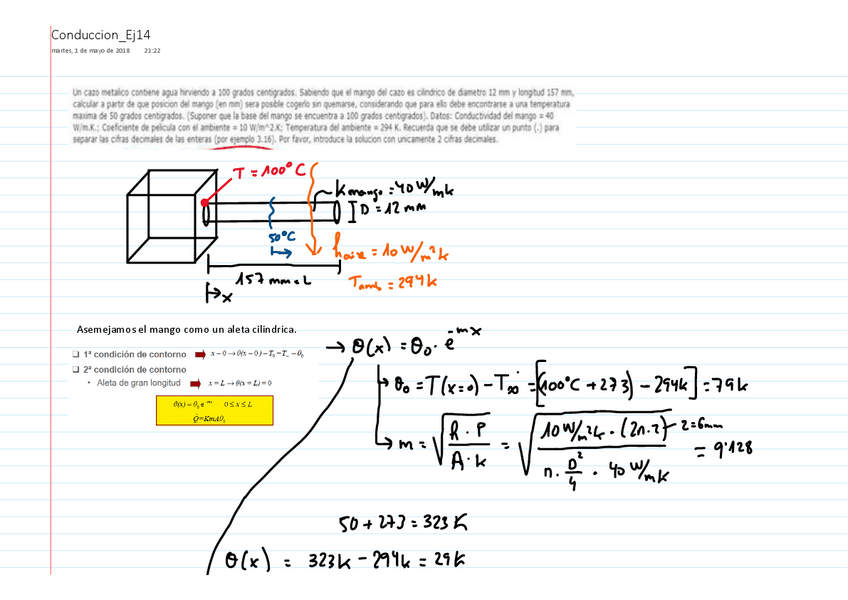 Conduccion_Ej14
martes, 1 de mayo de 2018 21:22
Un cazo metalico contiene agua hirviendo a 100 grados centigrados. Sabiendo que el mango del cazo es cilindrico de diametro 12 mm y longitud 157 mm,
calcular a partir de que posicion del mango (en mm) sera posible cogerlo sin quemarse, considerando que para ello debe encontrarse a una temperatura
maxima de 50 grados centigrados. (Suponer que la base del mango se encuentra a 100 grados centigrados). Datos: Conductividad del mango = 40
W/m.K.; Coeficiente de pelicula con el ambiente = 10 W/m^2.K; Temperatura del ambiente = 294 K. Recuerda que se debe utilizar un punto (.) para
separar las cifras decimales de las enteras (por ejemplo 3.16). Por favor, introduce la solucion con unicamente 2 cifras decimales.
T = 100°C
K mango = 40 W/mk
D = 12 mm
50°C
h aire = 10 W/m²k
157 mm = L
T amb = 294k
x
Asemejamos el mango como un aleta cilíndrica.
→ θ(x) = θ₀ · e^-mx
❑ 1ª condición de contorno
❑ 2ª condición de contorno
• Aleta de gran longitud x = L → θ(x = L) = 0
θ(x) = θ₀ e^-mx 0 ≤ x ≤ L
Q̇ = KmAθ₀
θ₀ = T(x=0) - T∞ = [(100°C + 273) - 294k] = 79k
m = √(h · P / A · k) = √(10 W/m²k · (2π·r) / π · D²/4 · 40 W/mk) r = 6mm = 9'128
50 + 273 = 323 K
θ(x) = 323k - 294k = 29k